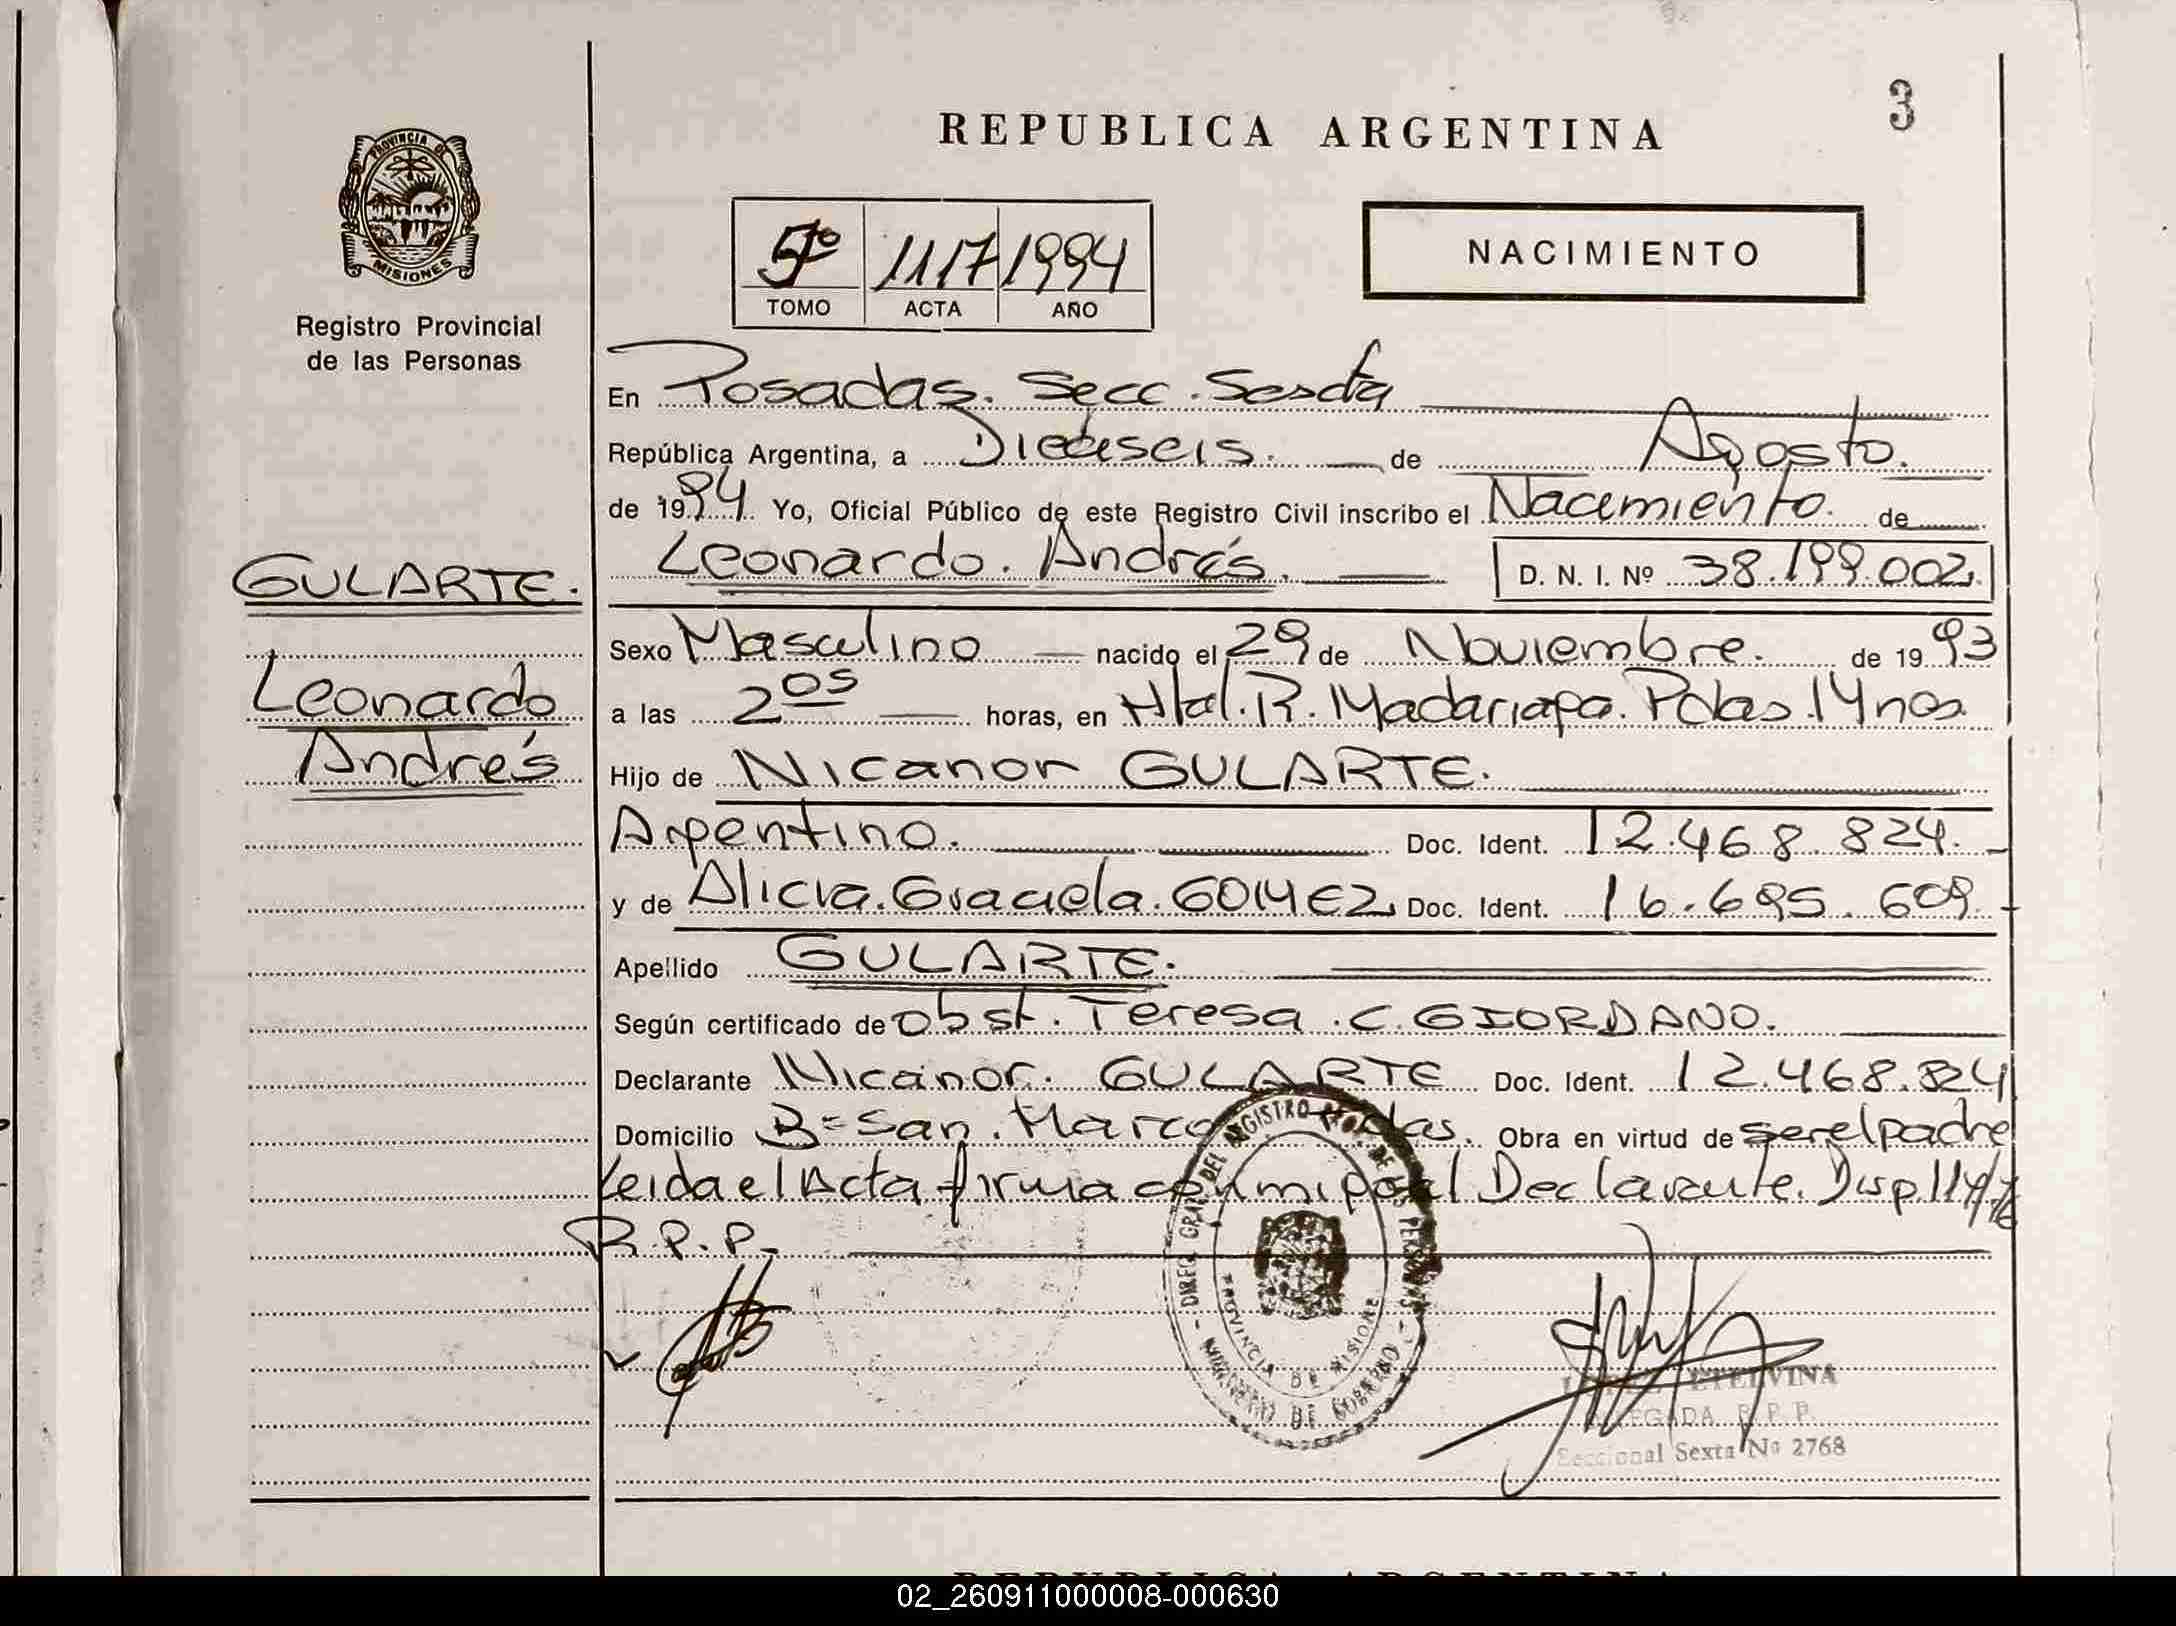 3
REPUBLICA ARGENTINA
PROVINCIA DE
MISIONES
Registro Provincial
de las Personas
5º 1117 1994
TOMO ACTA AÑO
NACIMIENTO
En Posadas. Secc. Sexta
República Argentina, a Dieciseis. de Agosto.
de 1994. Yo, Oficial Público de este Registro Civil inscribo el Nacimiento. de
Leonardo. Andrés. D. N. I. Nº 38.199.002.
GULARTE.
Leonardo
Andrés
Sexo Masculino nacido el 29 de Noviembre. de 1993
a las 2 05 horas, en Htal. R. Madariaga. Pdas. Mnes.
Hijo de Nicanor GULARTE.
Argentino. Doc. Ident. 12.468.824.
y de Alicia. Graciela. GOMEZ, Doc. Ident. 16.695.609.
Apellido GULARTE.
Según certificado de Obst. Teresa. C. GIORDANO.
Declarante Nicanor. GULARTE Doc. Ident. 12.468.824
Domicilio Bº San. Marcos Pdas. Obra en virtud de ser el padre
Leida el Acta firma conmigo el Declarante. Disp.
R.P.P.
DIREC. GRAL. DEL REGISTRO PROV. DE LAS PERSONAS
PROVINCIA DE MISIONES
MINISTERIO DE GOBIERNO
ETELVINA
DELEGADA R. P. P.
Seccional Sexta Nº 2768
REPUBLICA ARGENTINA
02_260911000008-000630